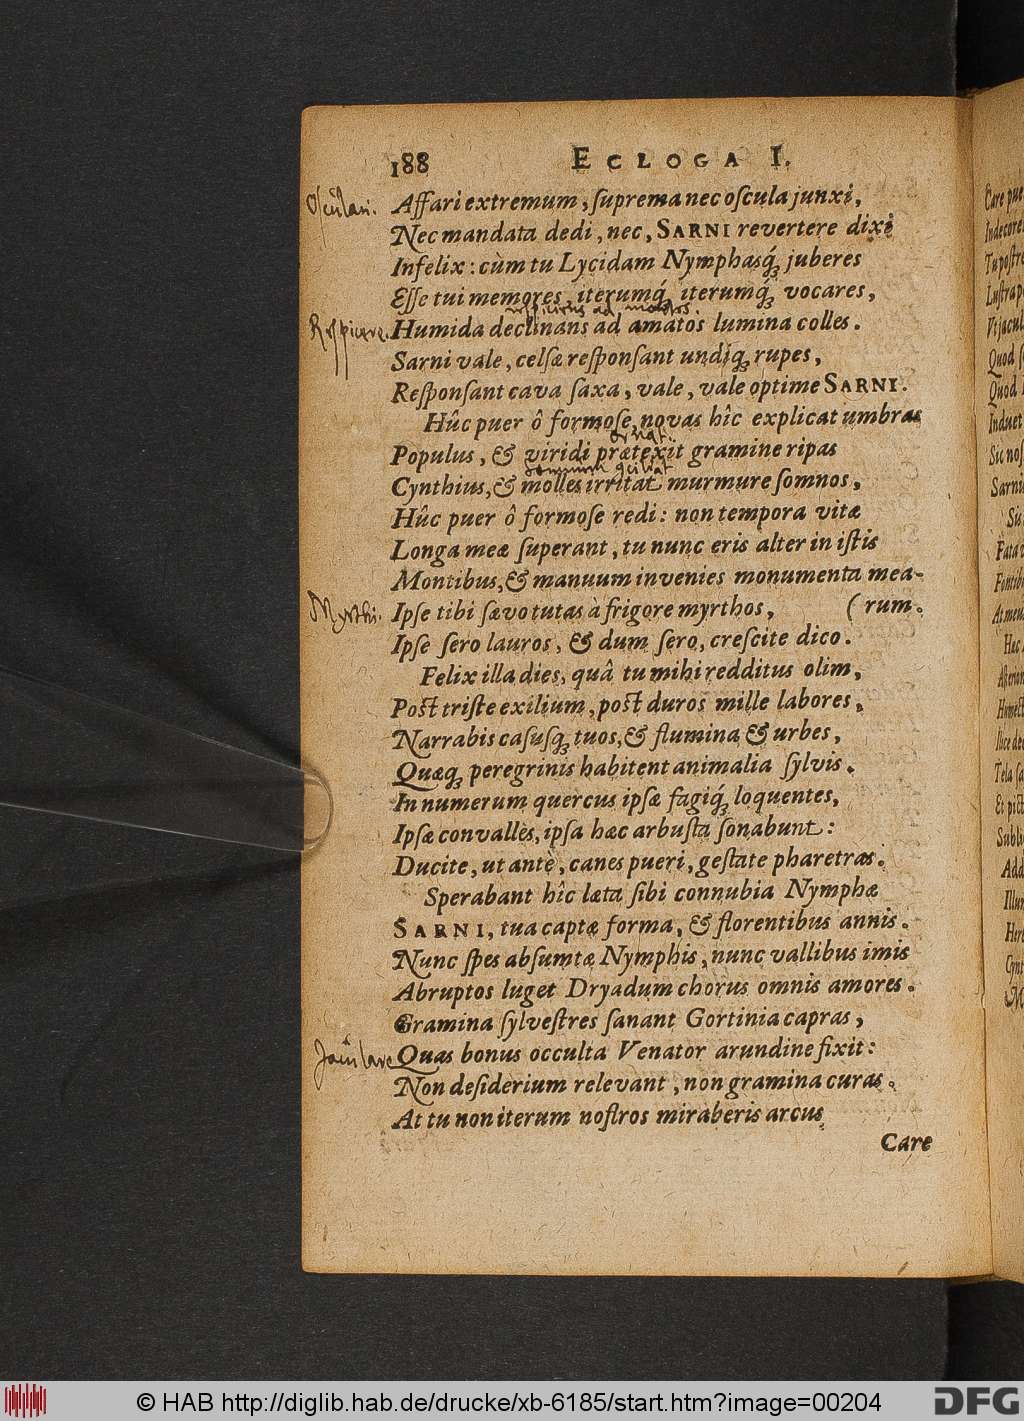 188 ECLOGA I.
Osculari. Affari extremum, suprema nec oscula junxi,
Nec mandata dedi, nec, SARNI revertere dixi
Infelix: cùm tu Lycidam Nymphasq́; juberes
Esse tui memores, iterumq́; iterumq́; vocares,
respiciens ad montes.
Respicere. Humida declinans ad amatos lumina colles.
Sarni vale, celsæ responsant undiq; rupes,
Responsant cava saxa, vale, vale optime SARNI.
Hûc puer ô formose, novas hîc explicat umbras
ornat
Populus, & viridi prætexit gramine ripas
somnum conciliat
Cynthius, & molles irritat murmure somnos,
Hûc puer ô formose redi: non tempora vitæ
Longa meæ superant, tu nunc eris alter in istis
Montibus, & manuum invenies monumenta mea-
Myrthi. Ipse tibi sævo tutas à frigore myrthos, (rum.
Ipse sero lauros, & dum sero, crescite dico.
Felix illa dies, quâ tu mihi redditus olim,
Post triste exilium, post duros mille labores,
Narrabis casusq; tuos, & flumina & urbes,
Quæq; peregrinis habitent animalia sylvis.
In numerum quercus ipsæ fagiq́; loquentes,
Ipsæ convallès, ipsa hæc arbusta sonabunt:
Ducite, ut antè, canes pueri, gestate pharetras.
Sperabant hîc læta sibi connubia Nymphæ
SARNI, tua captæ forma, & florentibus annis.
Nunc spes absumtæ Nymphis, nunc vallibus imis
Abruptos luget Dryadum chorus omnis amores.
Gramina sylvestres sanant Gortinia capras,
Jaculare Quas bonus occulta Venator arundine fixit:
Non desiderium relevant, non gramina curas.
At tu non iterum nostros miraberis arcus
Care
© HAB http://diglib.hab.de/drucke/xb-6185/start.htm?image=00204
DFG